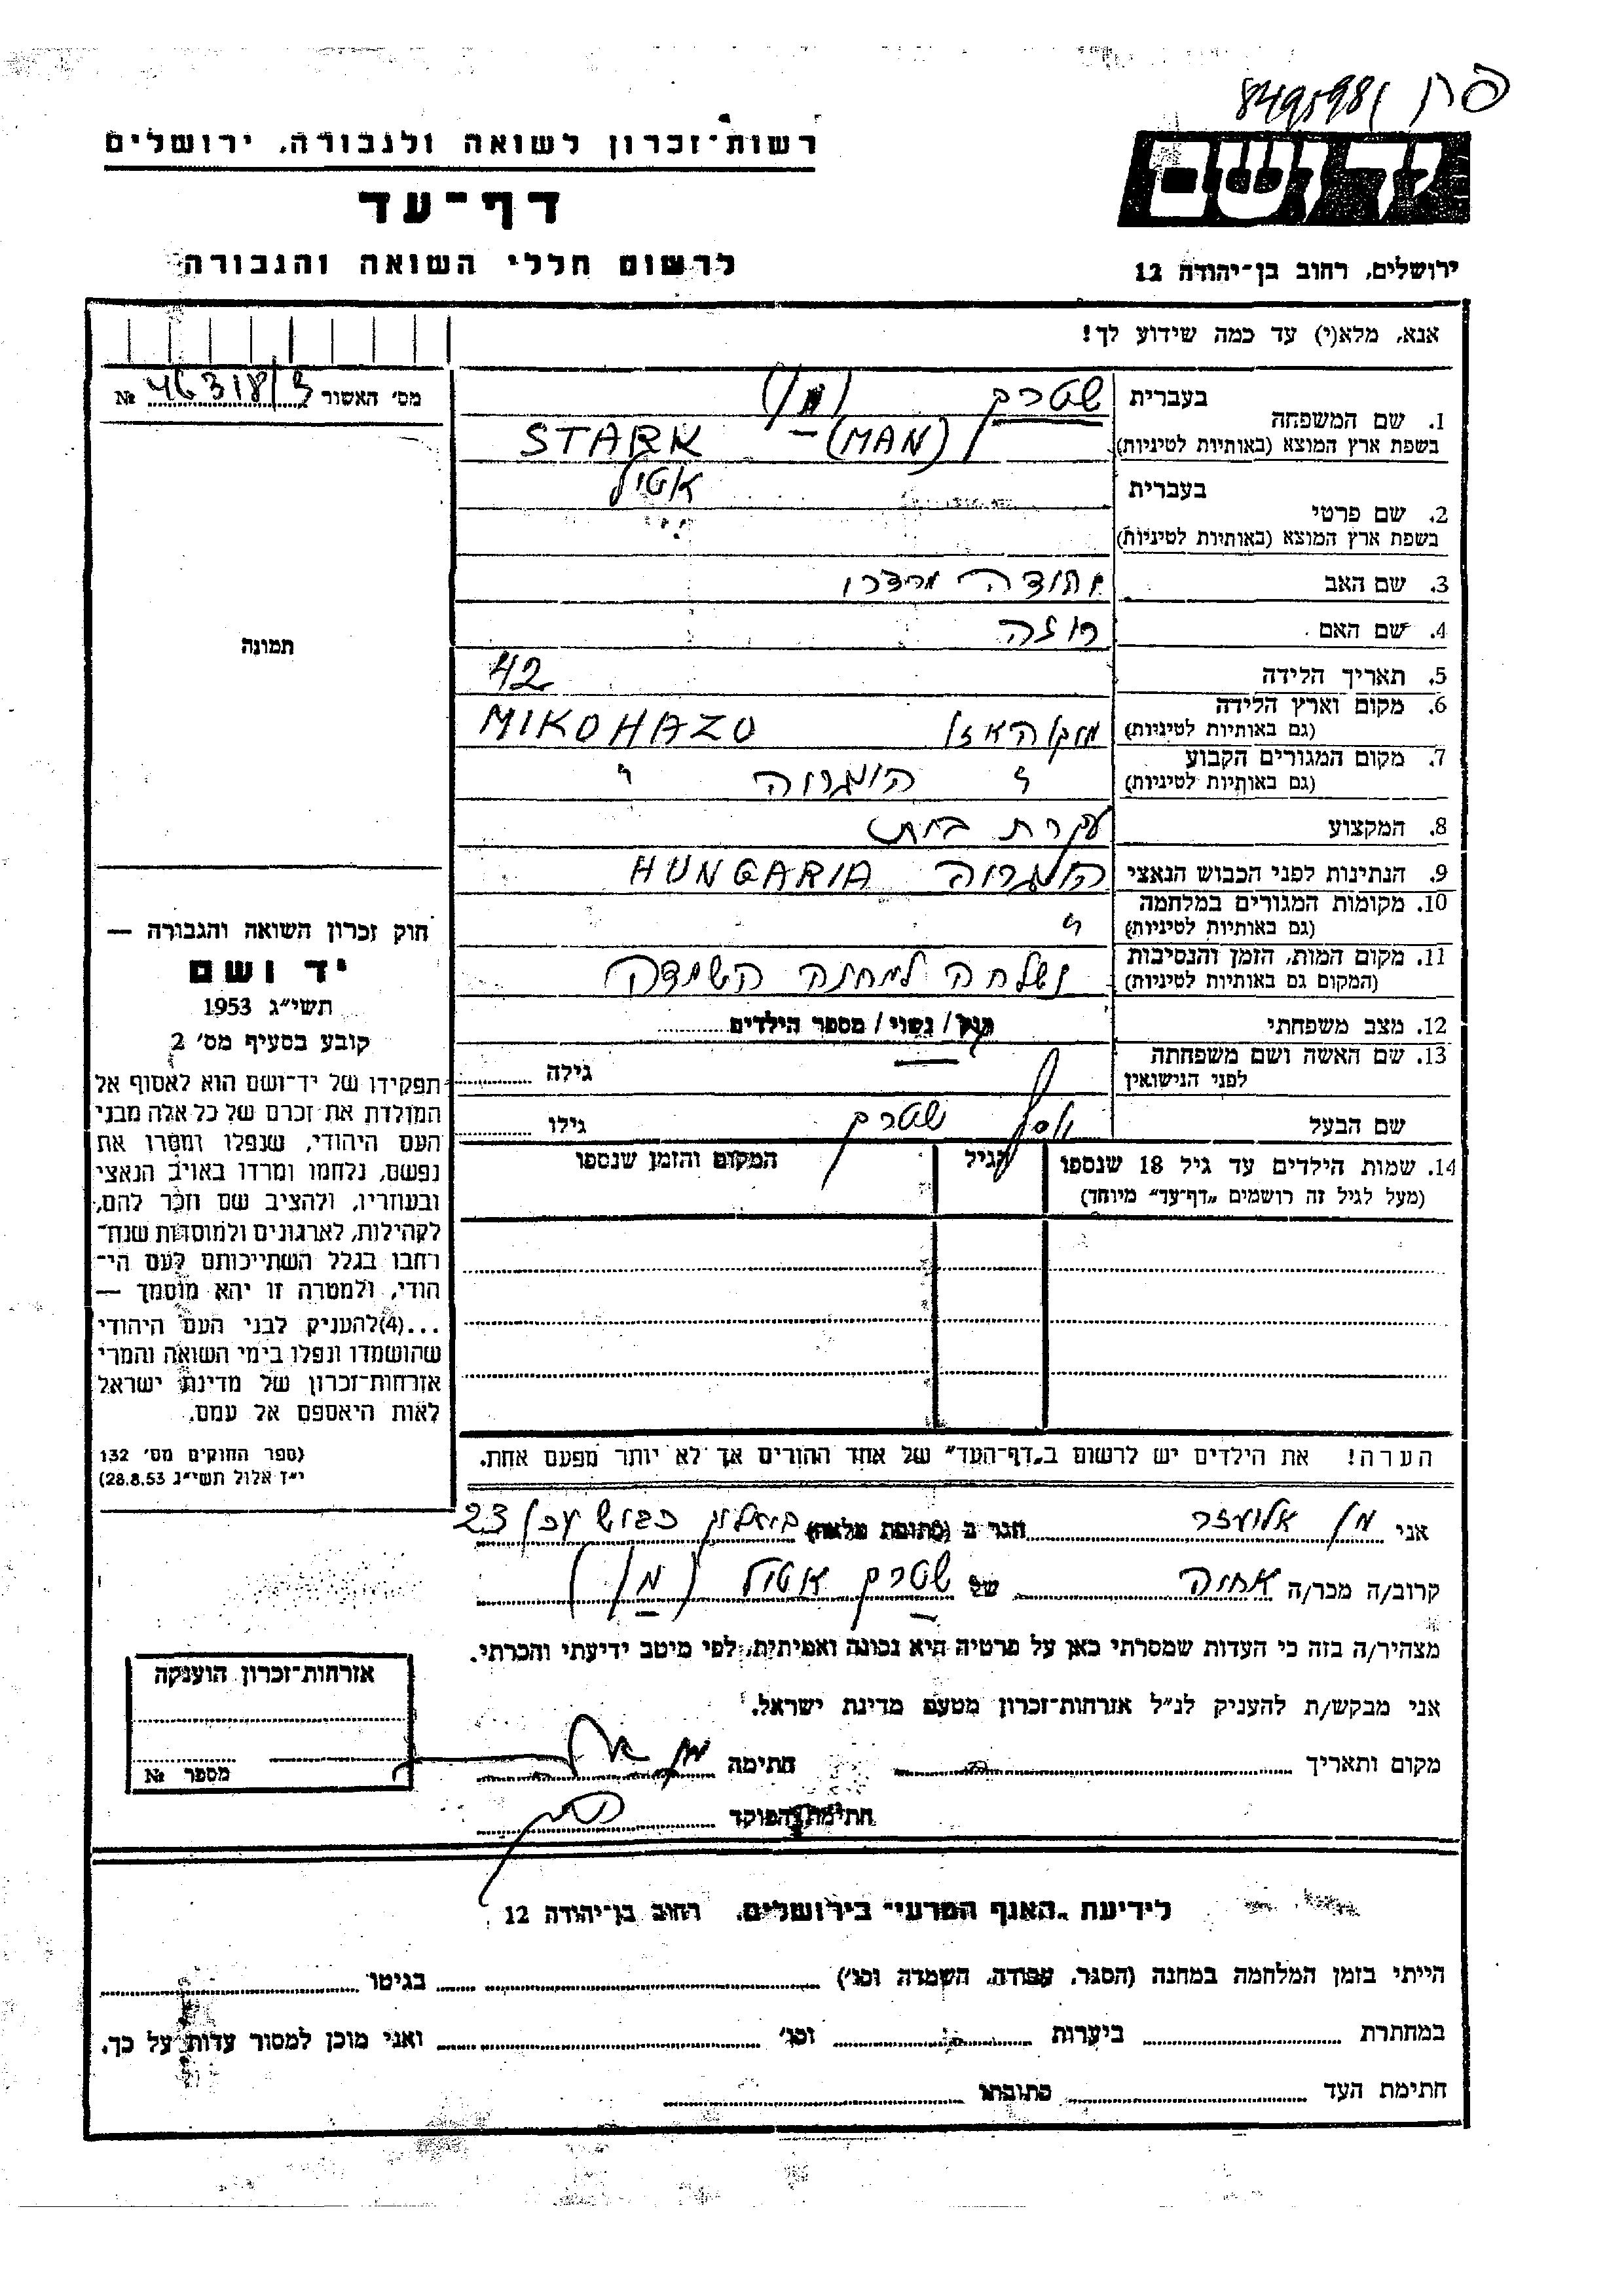 רשות־זכרון לשואה ולגבורה, ירושלים
דף־עד
לרשום חללי השואה והגבורה
יד ושם
ירושלים, רחוב בן־יהודה 12
אנא, מלא(י) עד כמה שידוע לך!
מס׳ האשור 46318/3 №
1. שם המשפחה בעברית שטרק (מן)
בשפת ארץ המוצא (באותיות לטיניות) STARK (MAN)
2. שם פרטי בעברית אטיל
בשפת ארץ המוצא (באותיות לטיניות)
3. שם האב יהודה מרדכי
4. שם האם רוזה
5. תאריך הלידה 42
6. מקום וארץ הלידה
(גם באותיות לטיניות) מיקוהאזו MIKOHAZO
7. מקום המגורים הקבוע
(גם באותיות לטיניות) " הונגריה "
8. המקצוע עקרת בית
9. הנתינות לפני הכבוש הנאצי הונגריה HUNGARIA
10. מקומות המגורים במלחמה
(גם באותיות לטיניות) "
11. מקום המות, הזמן והנסיבות
(המקום גם באותיות לטיניות) נשלחה למחנה השמדה
12. מצב משפחתי רווק / נשוי / מספר הילדים
13. שם האשה ושם משפחתה
לפני הנישואין גילה
שם הבעל שטרק גילו
14. שמות הילדים עד גיל 18 שנספו הגיל המקום והזמן שנספו
(מעל לגיל זה רושמים „דף־עד״ מיוחד)
הערה! את הילדים יש לרשום ב„דף־העד״ של אחד ההורים אך לא יותר מפעם אחת.
תמונה
חוק זכרון השואה והגבורה —
יד ושם
תשי״ג 1953
קובע בסעיף מס׳ 2
תפקידו של יד־ושם הוא לאסוף אל
המולדת את זכרם של כל אלה מבני
העם היהודי, שנפלו ומסרו את
נפשם, נלחמו ומרדו באויב הנאצי
ובעוזריו, ולהציב שם וזכר להם,
לקהילות, לארגונים ולמוסדות שנח־
רחבו בגלל השתייכותם לעם הי־
הודי, ולמטרה זו יהא מוסמך —
...(4)להעניק לבני העם היהודי
שהושמדו ונפלו בימי השואה והמרי
אזרחות־זכרון של מדינת ישראל
לאות היאספם אל עמם.
(ספר החוקים מס׳ 132
י״ד אלול תשי״ג 28.8.53)
אני מן אליעזר הגר ב (כתובת מלאה) כבוש 23
קרוב/ה מכר/ה אחיה של שטרק אטיל (מן)
מצהיר/ה בזה כי העדות שמסרתי כאן על פרטיה היא נכונה ואמיתית, לפי מיטב ידיעתי והכרתי.
אני מבקש/ת להעניק לנ״ל אזרחות־זכרון מטעם מדינת ישראל.
מקום ותאריך חתימה מן
חתימת הפוקד
אזרחות־זכרון הוענקה
מספר №
לידיעת „האגף המדעי״ בירושלים, רחוב בן־יהודה 12
הייתי בזמן המלחמה במחנה (הסגר, עבודה, השמדה וכו׳) בגיטו
במחתרת ביערות וכו׳ ואני מוכן למסור עדות על כך.
חתימת העד כתובתו